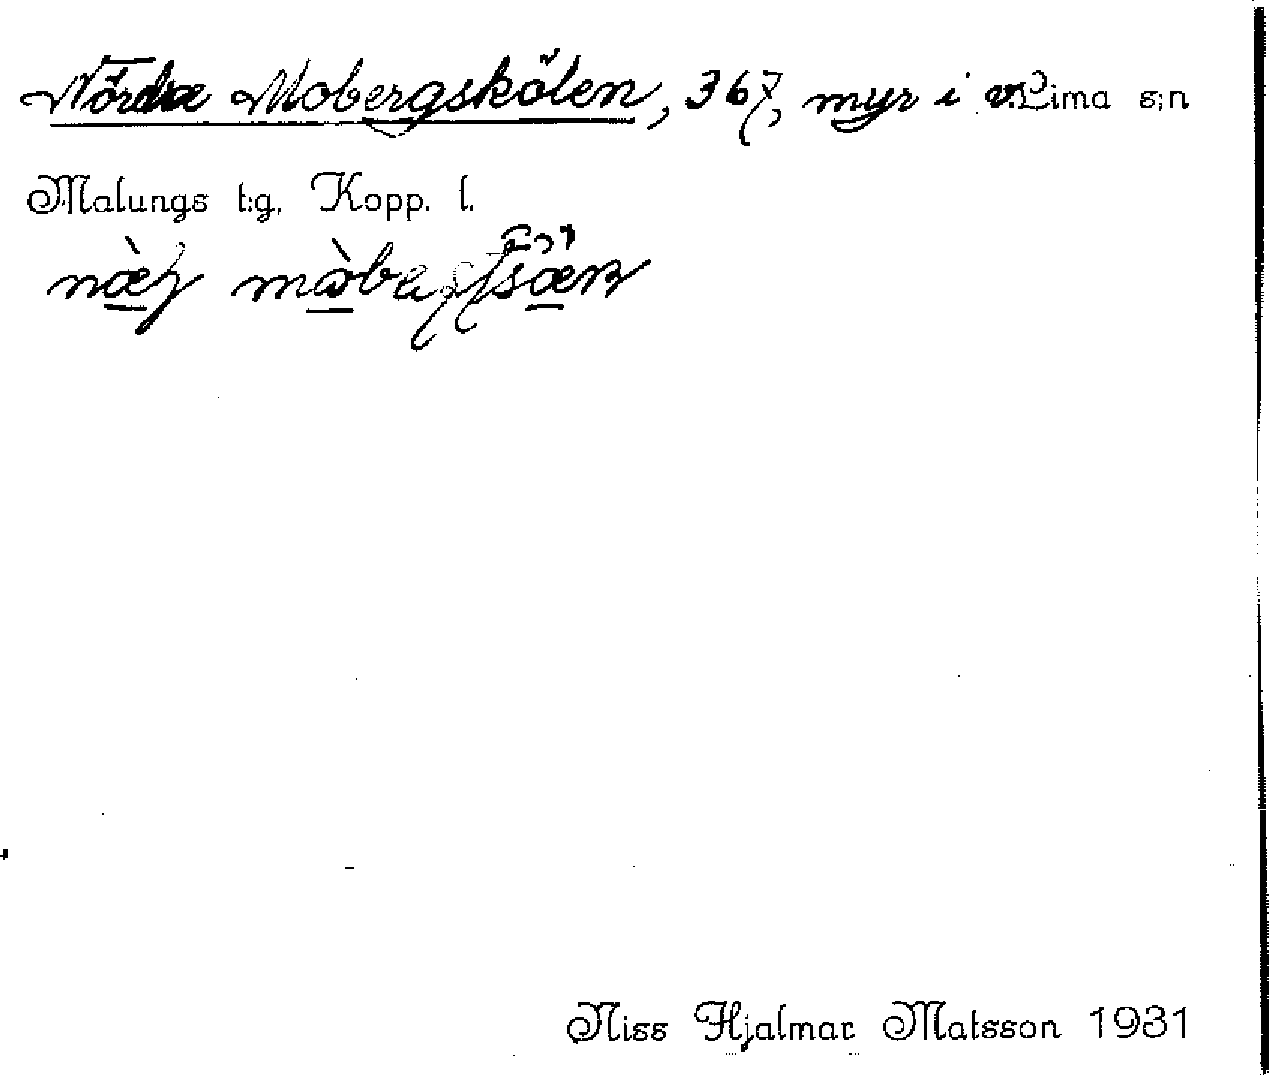 Nördre Mobergskölen, 367, myr i v. Lima s:n
Malungs t:g. Kopp. l.
Niss Hjalmar Matsson 1931